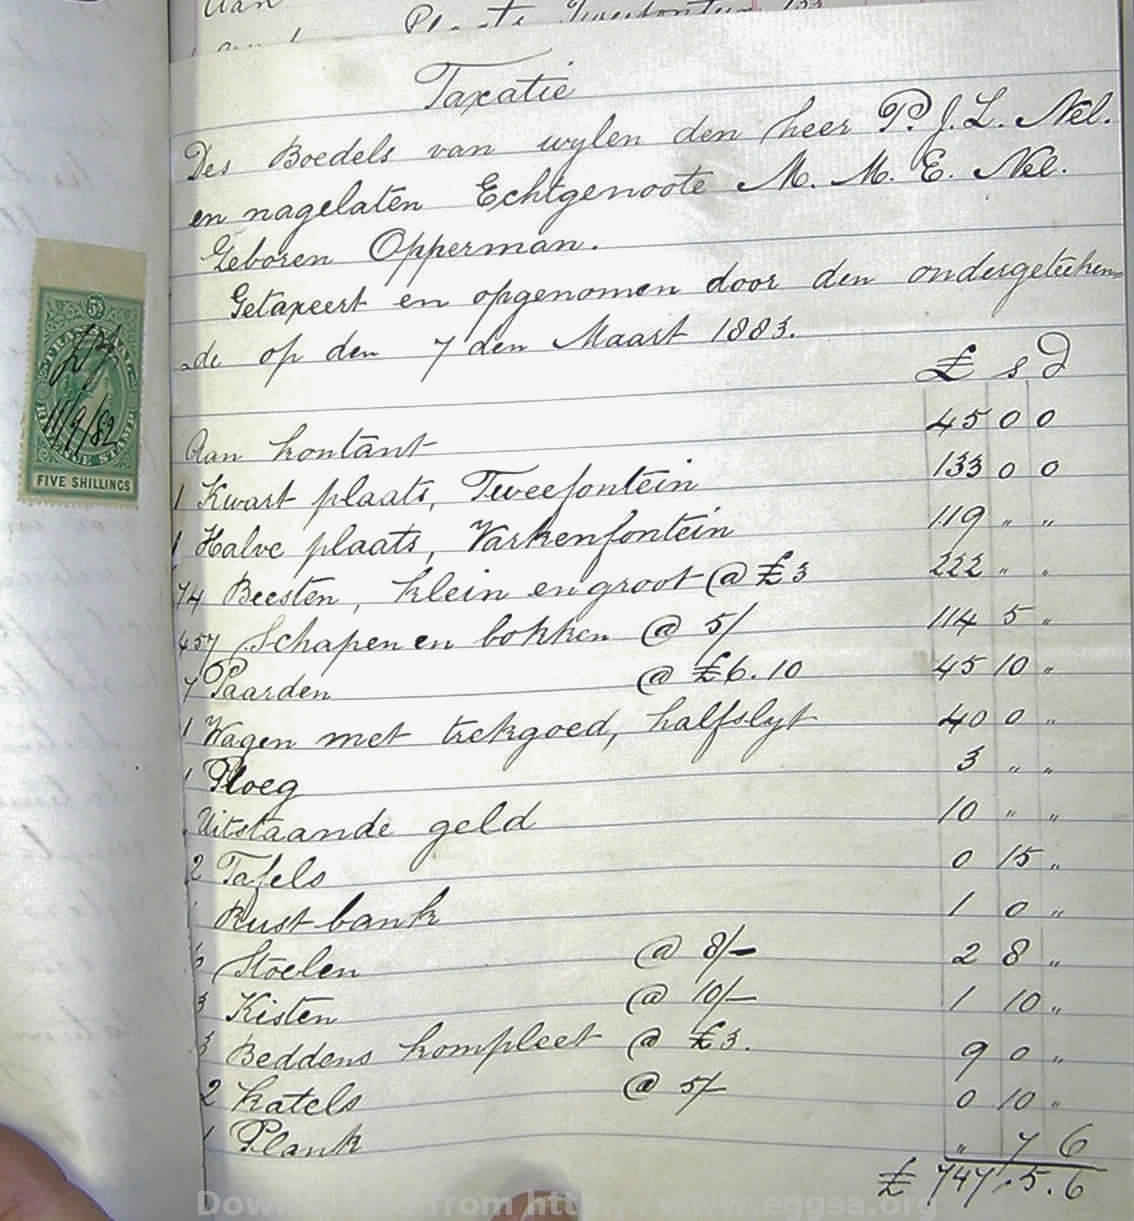 Aan
Plaats Tweefontein 133
Taxatie
Des Boedels van wylen den heer P. J. L. Nel.
en nagelaten Echtgenoote M. M. E. Nel.
Geboren Opperman.
Getaxeert en opgenomen door den ondergeteeken
de op den 7 den Maart 1883.
£ s d
Aan kontant 45 0 0
1 Kwart plaats, Tweefontein 133 0 0
1 Halve plaats, Varkenfontein 119 " "
74 Beesten, klein en groot @ £3 222 " "
457 Schapen en bokken @ 5/ 114 5 "
7 Paarden @ £6.10 45 10 "
1 Wagen met trekgoed, halfslyt 40 0 "
1 Ploeg 3 " "
Uitstaande geld 10 " "
2 Tafels 0 15 "
1 Rustbank 1 0 "
6 Stoelen @ 8/- 2 8 "
3 Kisten @ 10/- 1 10 "
3 Beddens kompleet @ £3. 9 0 "
2 Katels @ 5/- 0 10 "
1 Plank " 7 6
£ 747.5.6
11/9/82
FIVE SHILLINGS
Down from http www.eggsa.org